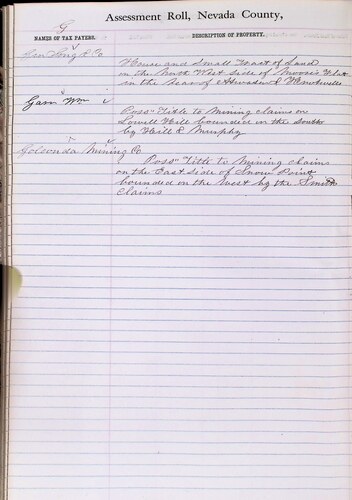 Assessment Roll, Nevada County,
G
NAMES OF TAX PAYERS.
DESCRIPTION OF PROPERTY.
Gan Song & Co
House and Small Tract of Land
on the North West side of Moore's Flat
in the Rear of &
Gam Wm
Poss" Title to Mining claims on
Lowell Hill bounded on the South
by Hill & Murphy
Golconda Mining Co
Poss" Title to Mining claims
on the East side of Snow Point
bounded on the West by the Smith
Claims